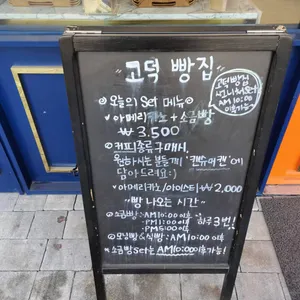 "고덕 빵집"
고덕빵집
AM 10:00
이후가능
◎오늘의 Set 메뉴♡
♡아메리카노 + 소금빵
₩3,500
◎커피종류 구매시,
원하시는 분들께 '캔유어캔'에
담아드려요:)
♡아메리카노/아이스티 ₩2,000
"빵 나오는 시간"
◎소금빵 : AM10:00 이후
PM1:00 이후
PM5:00 이후
하루 3번!
◎모닝빵&식빵 : AM10:00 이후
◎소금빵 Set는 AM10:00 이후가능!